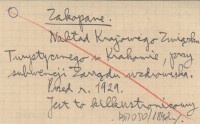 Zakopane.
Nakład Krajowego Związku
Turystycznego w Krakowie, przy
subwencji Zarządu uzdrowiska.
Przed r. 1929.
Jest to kilkustronicowy